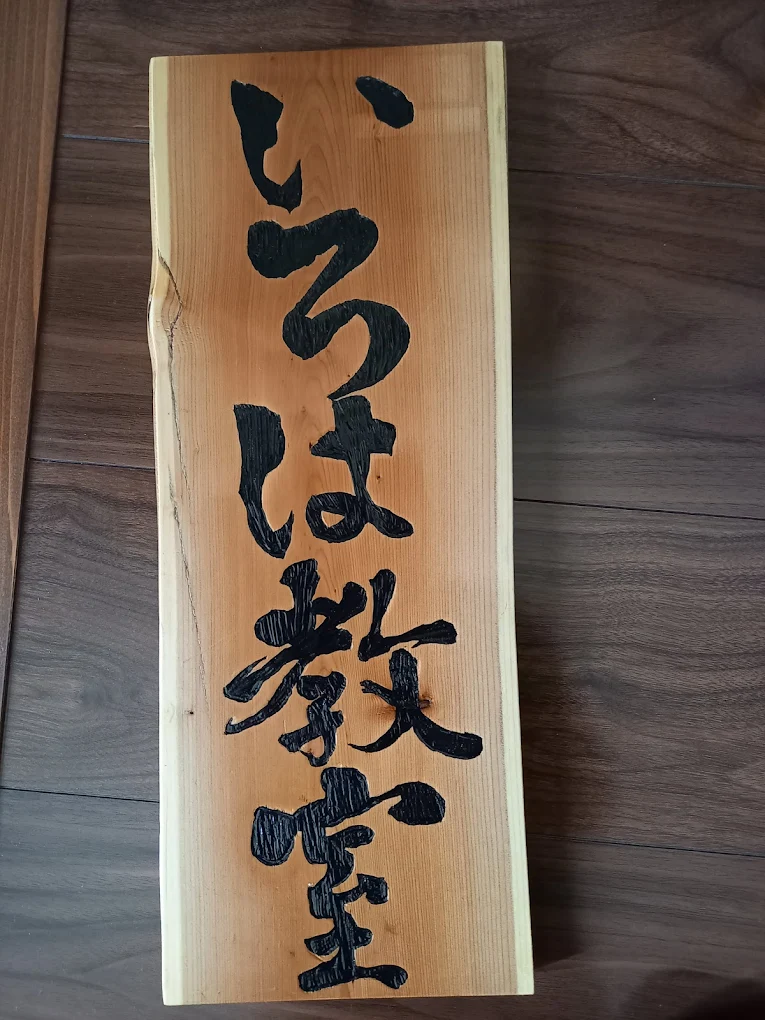 いろは教室